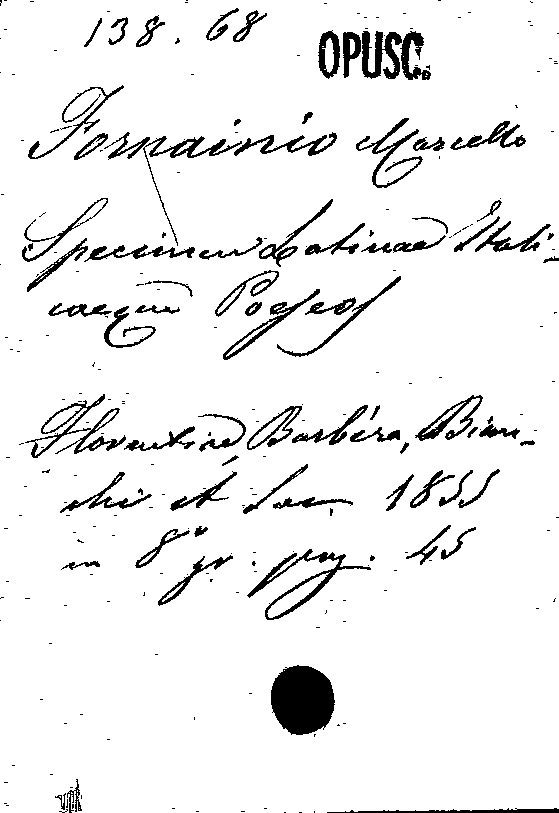 138. 68
OPUSC.
Fornainio Marcello
Specimen Latinae Itali-
caeque Poeseos
Florentiae, Barbéra, Bian-
chi et Soc. 1855
in 8º gr. pag. 45